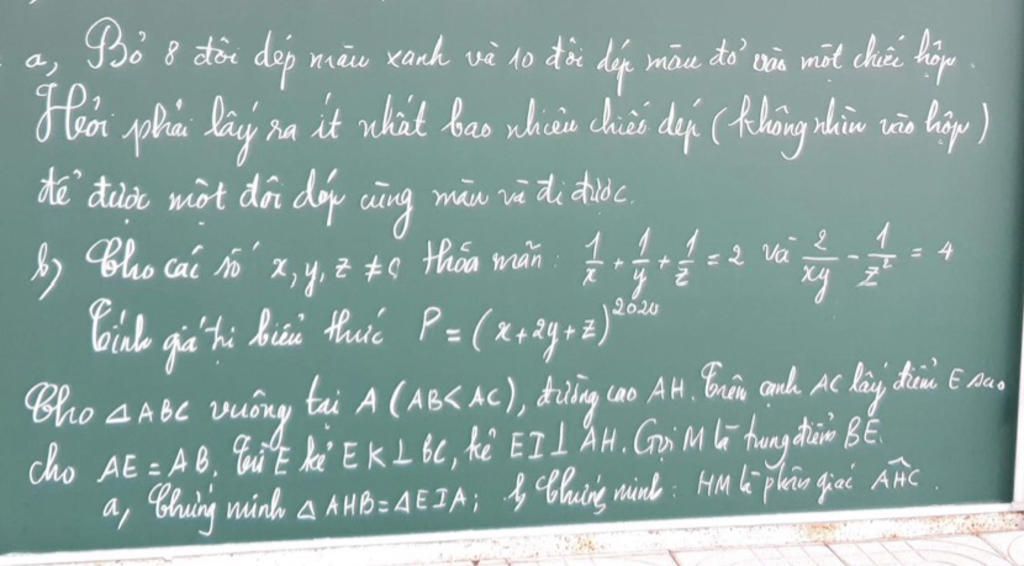 a, Bỏ 8 đôi dép màu xanh và 10 đôi dép màu đỏ vào một chiếc hộp.
Hỏi phải lấy ra ít nhất bao nhiêu chiếc dép (không nhìn vào hộp)
để được một đôi dép cùng màu và đi được.
b) Cho các số x, y, z ≠ 0 thỏa mãn: 1/x + 1/y + 1/z = 2 và 2/xy - 1/z² = 4
Tính giá trị biểu thức P = (x+2y+z)²⁰²⁰
Cho △ABC vuông tại A (AB<AC), đường cao AH. Trên cạnh AC lấy điểm E sao
cho AE = AB. Từ E kẻ EK⊥BC, kẻ EI⊥AH. Gọi M là trung điểm BE.
a, Chứng minh △AHB=△EIA; b, Chứng minh: HM là phân giác AHC.